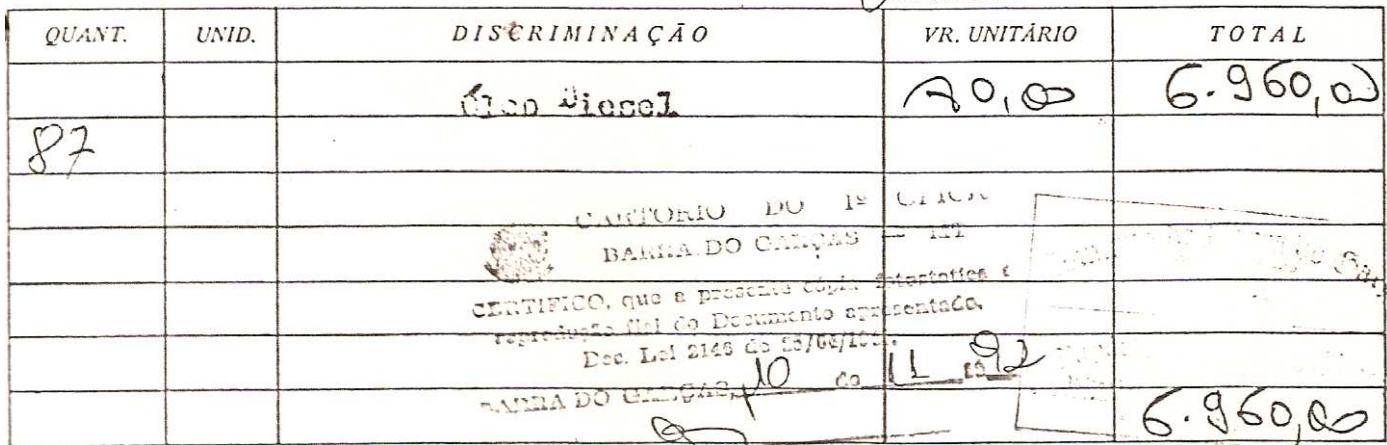 QUANT. UNID. DISCRIMINAÇÃO VR. UNITÁRIO TOTAL
Óleo Diesel 6.960,00
87
CARTORIO DO 1º
BARRA DO GARÇAS — MT
CERTIFICO, que a presente cópia fotostatica é
reprodução fiel do Documento apresentado.
Dec. Lei 2148 de
BARRA DO GARÇAS, 10 de 11 19 92
6.960,00